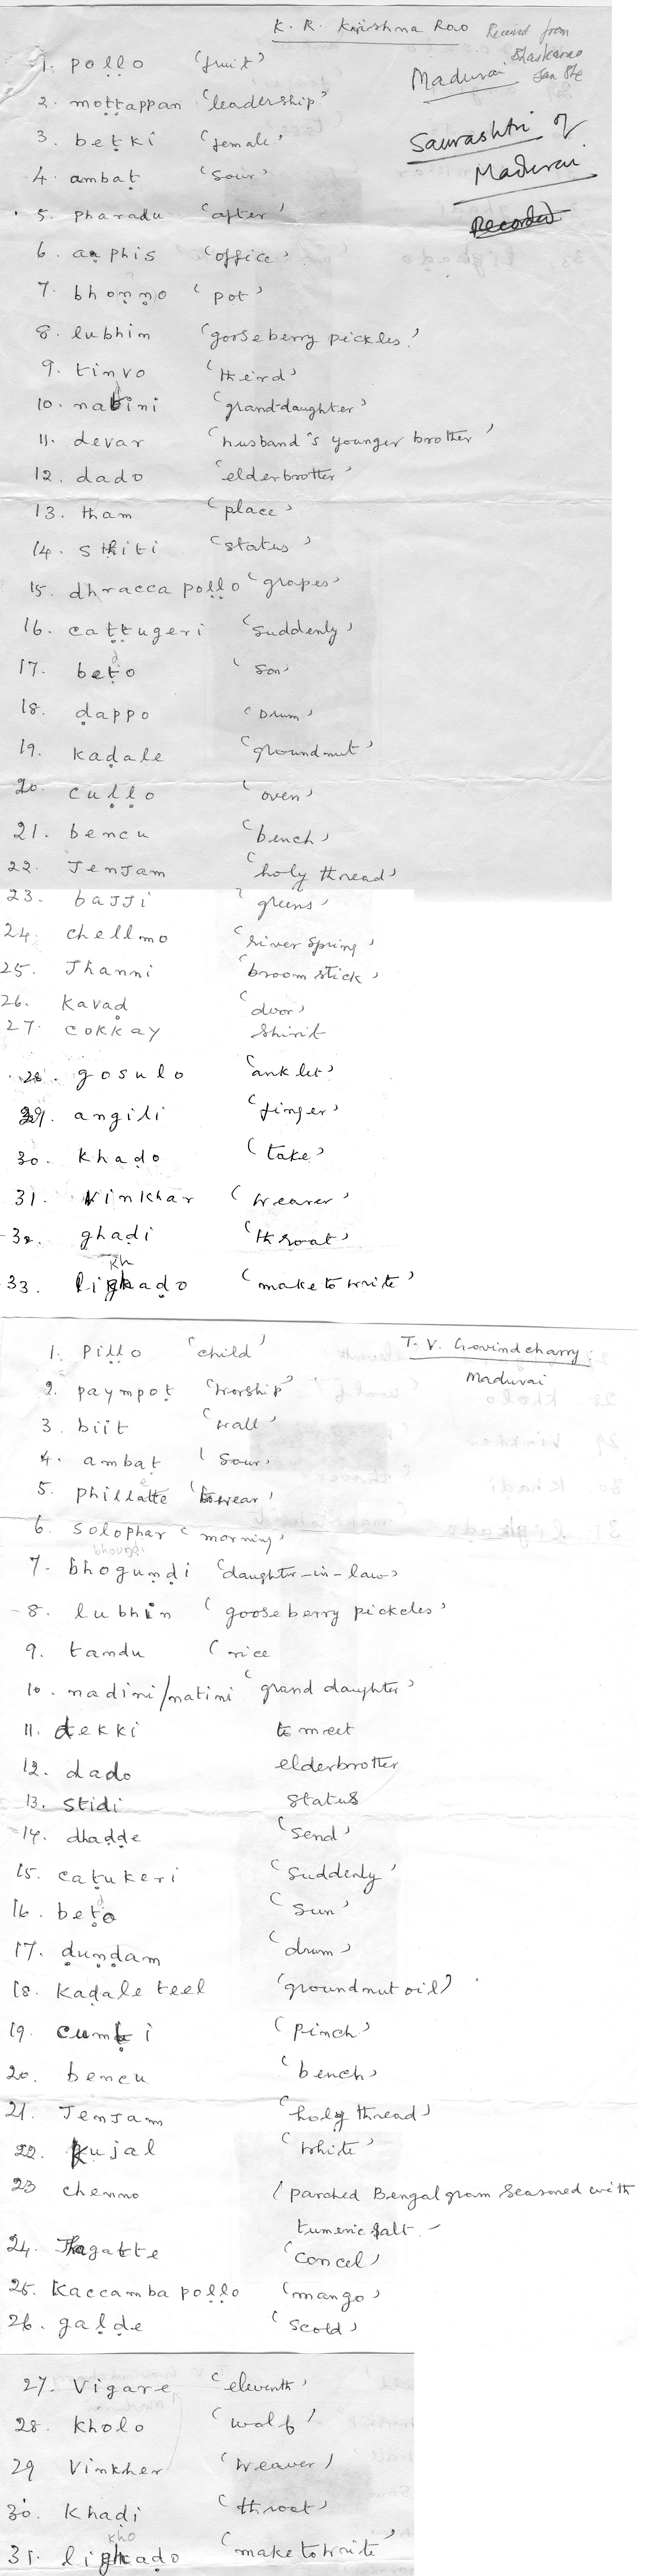 K. R. Krishna Rao
Received from
Bhaskararao
Jan 8th
Madurai
Saurashtri of
Madurai
Recorded
1. poḷḷo 'fruit'
2. moṭṭappan 'leadership'
3. beṭki 'female'
4. ambaṭ 'sour'
5. pharadu 'after'
6. aphis 'office'
7. bhoṇṇo 'pot'
8. lubhim 'gooseberry pickles'
9. tinvo 'theird'
10. natini 'grand-daughter'
11. devar 'husband's younger brother'
12. dado 'elderbrotter'
13. tham 'place'
14. sthiti 'status'
15. dhracca poḷḷo 'grapes'
16. caṭṭugeri 'suddenly'
17. beṭo 'son'
18. ḍappo 'Drum'
19. kaḍale 'groundnut'
20. cuḷḷo 'oven'
21. bencu 'bench'
22. JenJam 'holy thread'
23. baJJi 'greens'
24. chellmo 'river spring'
25. Jhanni 'broom stick'
26. kavaḍ 'door'
27. cokkay shirt
28. gosulo 'anklet'
29. angili 'finger'
30. khaḍo 'take'
31. vinkhar 'wearer'
32. ghaḍi 'throat'
kh
33. ligkaḍo 'make to write'
T. V. Govindcharry
Madurai
1. piḷḷo 'child'
2. paympoṭ 'worship'
3. biit 'wall'
4. ambaṭ 'sour'
5. phillatte 'to wear'
6. solophar 'morning'
bhoundi
7. bhoguṇḍi 'daughter-in-law'
8. lubhin 'gooseberry pickcles'
9. tandu 'rice
10. nadini/natini 'grand daughter'
11. dekki to meet
12. dado elderbrotter
13. stidi status
14. dhaḍḍe 'send'
15. caṭukeri 'suddenly'
16. beṭo 'sun'
17. ḍuṇḍam 'drum'
18. kaḍale teel 'groundnut oil'
19. cumṭi 'pinch'
20. bencu 'bench'
21. JenJam 'holy thread'
22. kujal 'white'
23 chenno 'parched Bengal gram seasoned with
tumeric salt.
24. Jhagatte 'concel'
25. kaccamba poḷḷo 'mango'
26. gaḷḍe 'scold'
27. vigare 'eleventh'
28. kholo 'wolf'
29 vinkher 'weaver'
30. khaḍi 'throat'
kho
31. ligkaḍo 'make to write'